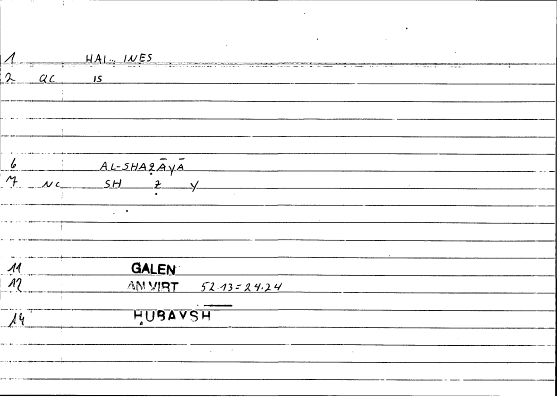 1 HAI.. INES
2 QC IS
6 AL-SHAẒĀYĀ
7 NC SH Ẓ Y
11 GALEN
12 AN VIRT 52.13=24.24
14 ḤUBAYSH